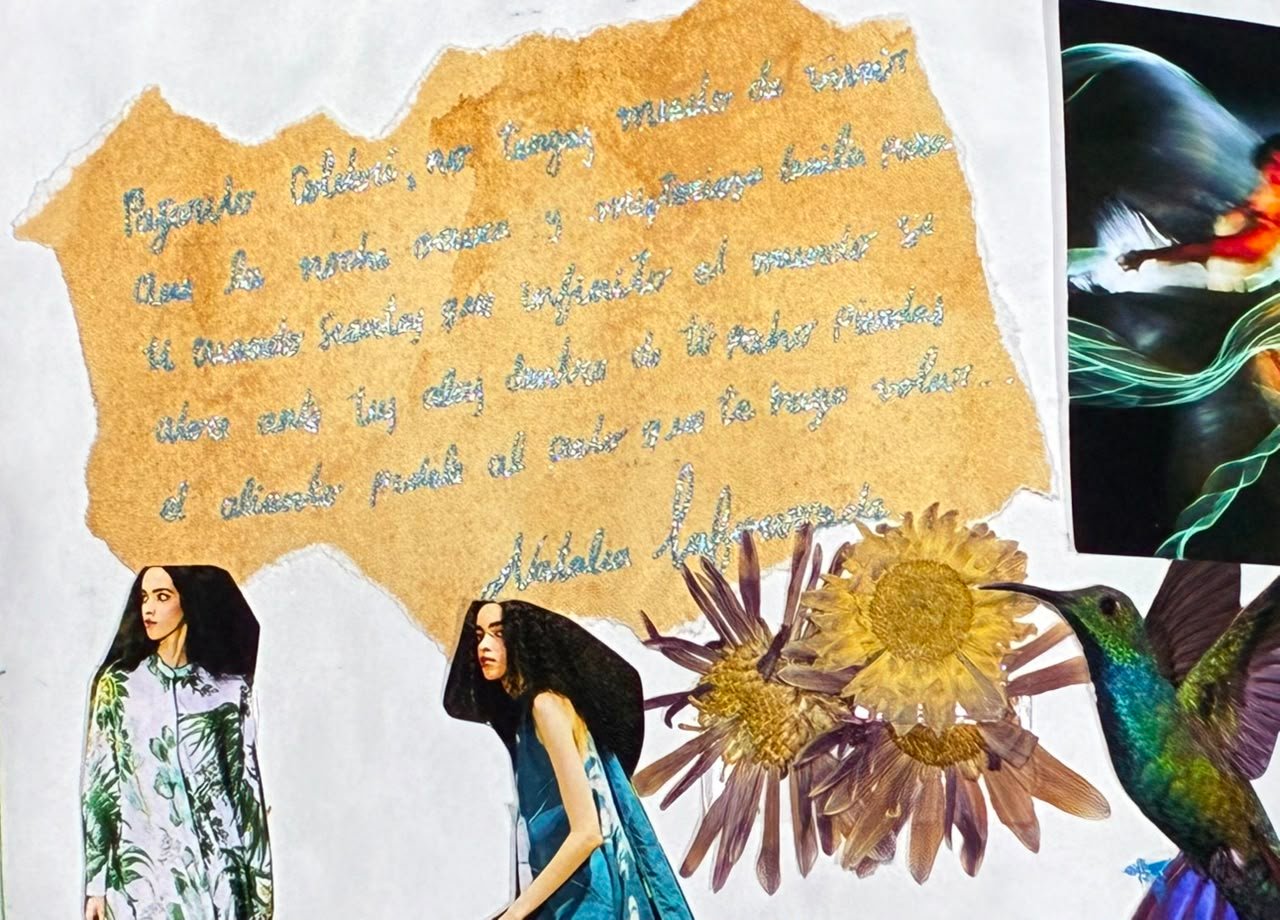 Pajarito Colibrí, no tengas miedo de vivir
Que la noche oscura y misteriosa brilla para
ti cuando sientas que infinito el mundo se
abra ante tus alas dentro de tu pecho pierdas
el aliento pidele al cielo que te haga volar...
Natalia Lafourcade